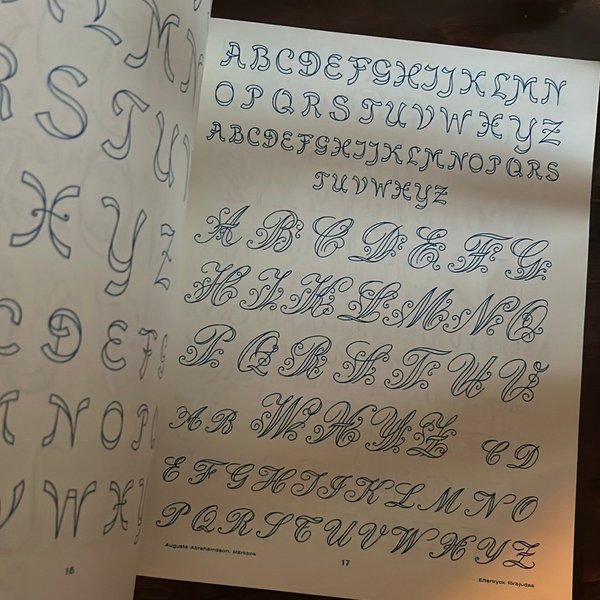 L M
R S T U
X Y Z
C D E F
N O P
V W X
16
A B C D E F G H I J K L M N
O P Q R S T U V W X Y Z
A B C D E F G H I J K L M N O P Q R S
T U V W X Y Z
A B C D E F G
H I K L M N O
P Q R S T U V
A B W X Y Z C D
E F G H I J K L M N O
P Q R S T U V W X Y Z
Augusta Abrahamdson, Märkbok
17
Eftertryck förbjudes